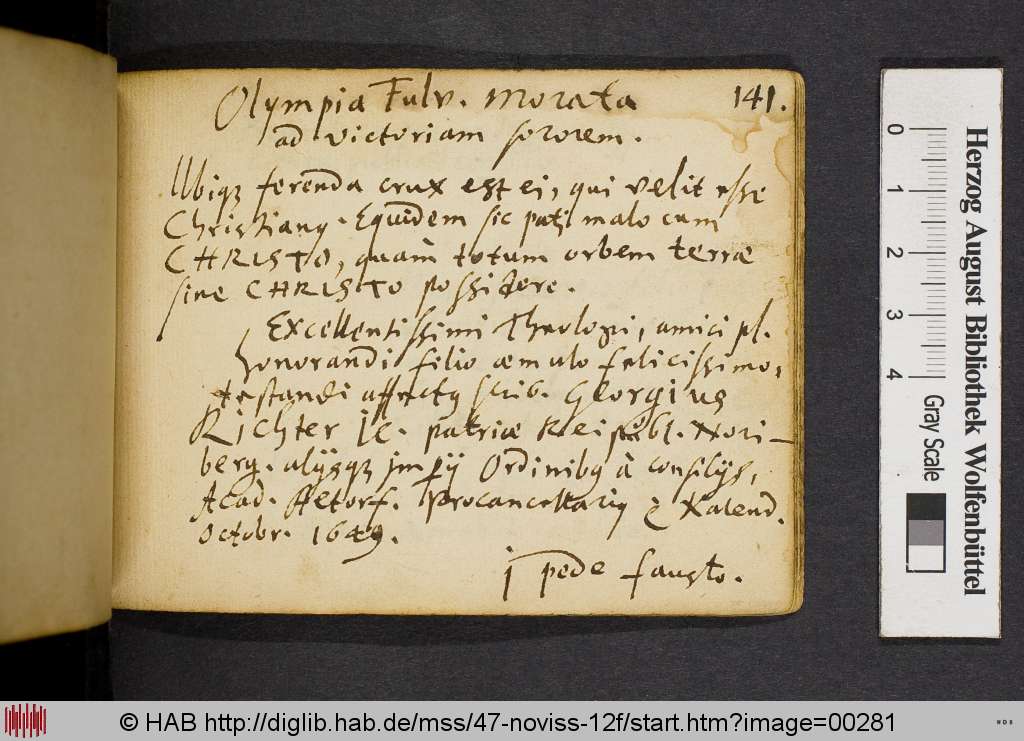 Olympia Fulv. Morata
141.
ad victoriam sororem.
Ubiqꝫ ferenda crux est ei, qui velit esse
Christianꝰ. Equidem sic pati malo cum
CHRISTO, quàm totum orbem terræ
sine CHRISTO possidere.
Excellentissimi Theologi, amici pl.
honorandi filio æmulo felicissimo,
testandi affectꝰ scrib. Georgius
Richter JC. patriæ Reipubl. Nori-
berg. alijsqꝫ Imꝑij Ordinibꝰ à consilijs,
Acad. Altorf. Procancellariꝰ Kalend.
Octobr. 1649.
I pede fausto.
0
1
2
3
4
Herzog August Bibliothek Wolfenbüttel
Gray Scale
© HAB http://diglib.hab.de/mss/47-noviss-12f/start.htm?image=00281